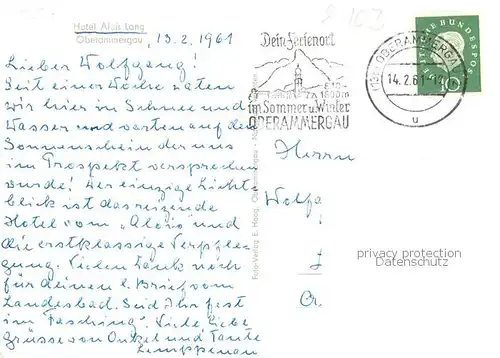 Hotel Alois Lang
Oberammergau
, 13.2.1961
Lieber Wolfgang!
Seit einer Woche waten
wir hier in Schnee und
Wasser und warten auf den
Sonnenschein der uns
im Prospekt versprochen
wurde! Der einzige Licht-
blick ist das reizende
Hotel vom "Alois" und
die erstklassige Verpfle-
gung. Vielen Dank noch
für deinen l. Brief vom
Landesbad. Seid Ihr fest
im "Fasching". Viele liebe
Grüsse von Onkel und Tante
Lemppenau
Foto-Verlag E. Haag, Oberammergau
Dein Ferienort
im Sommer u. Winter
OBERAMMERGAU
OBERAMMERGAU
14.2.61-12
u
DEUTSCHE BUNDESPOST
10
Herrn
Wolfg
privacy protection
Datenschutz